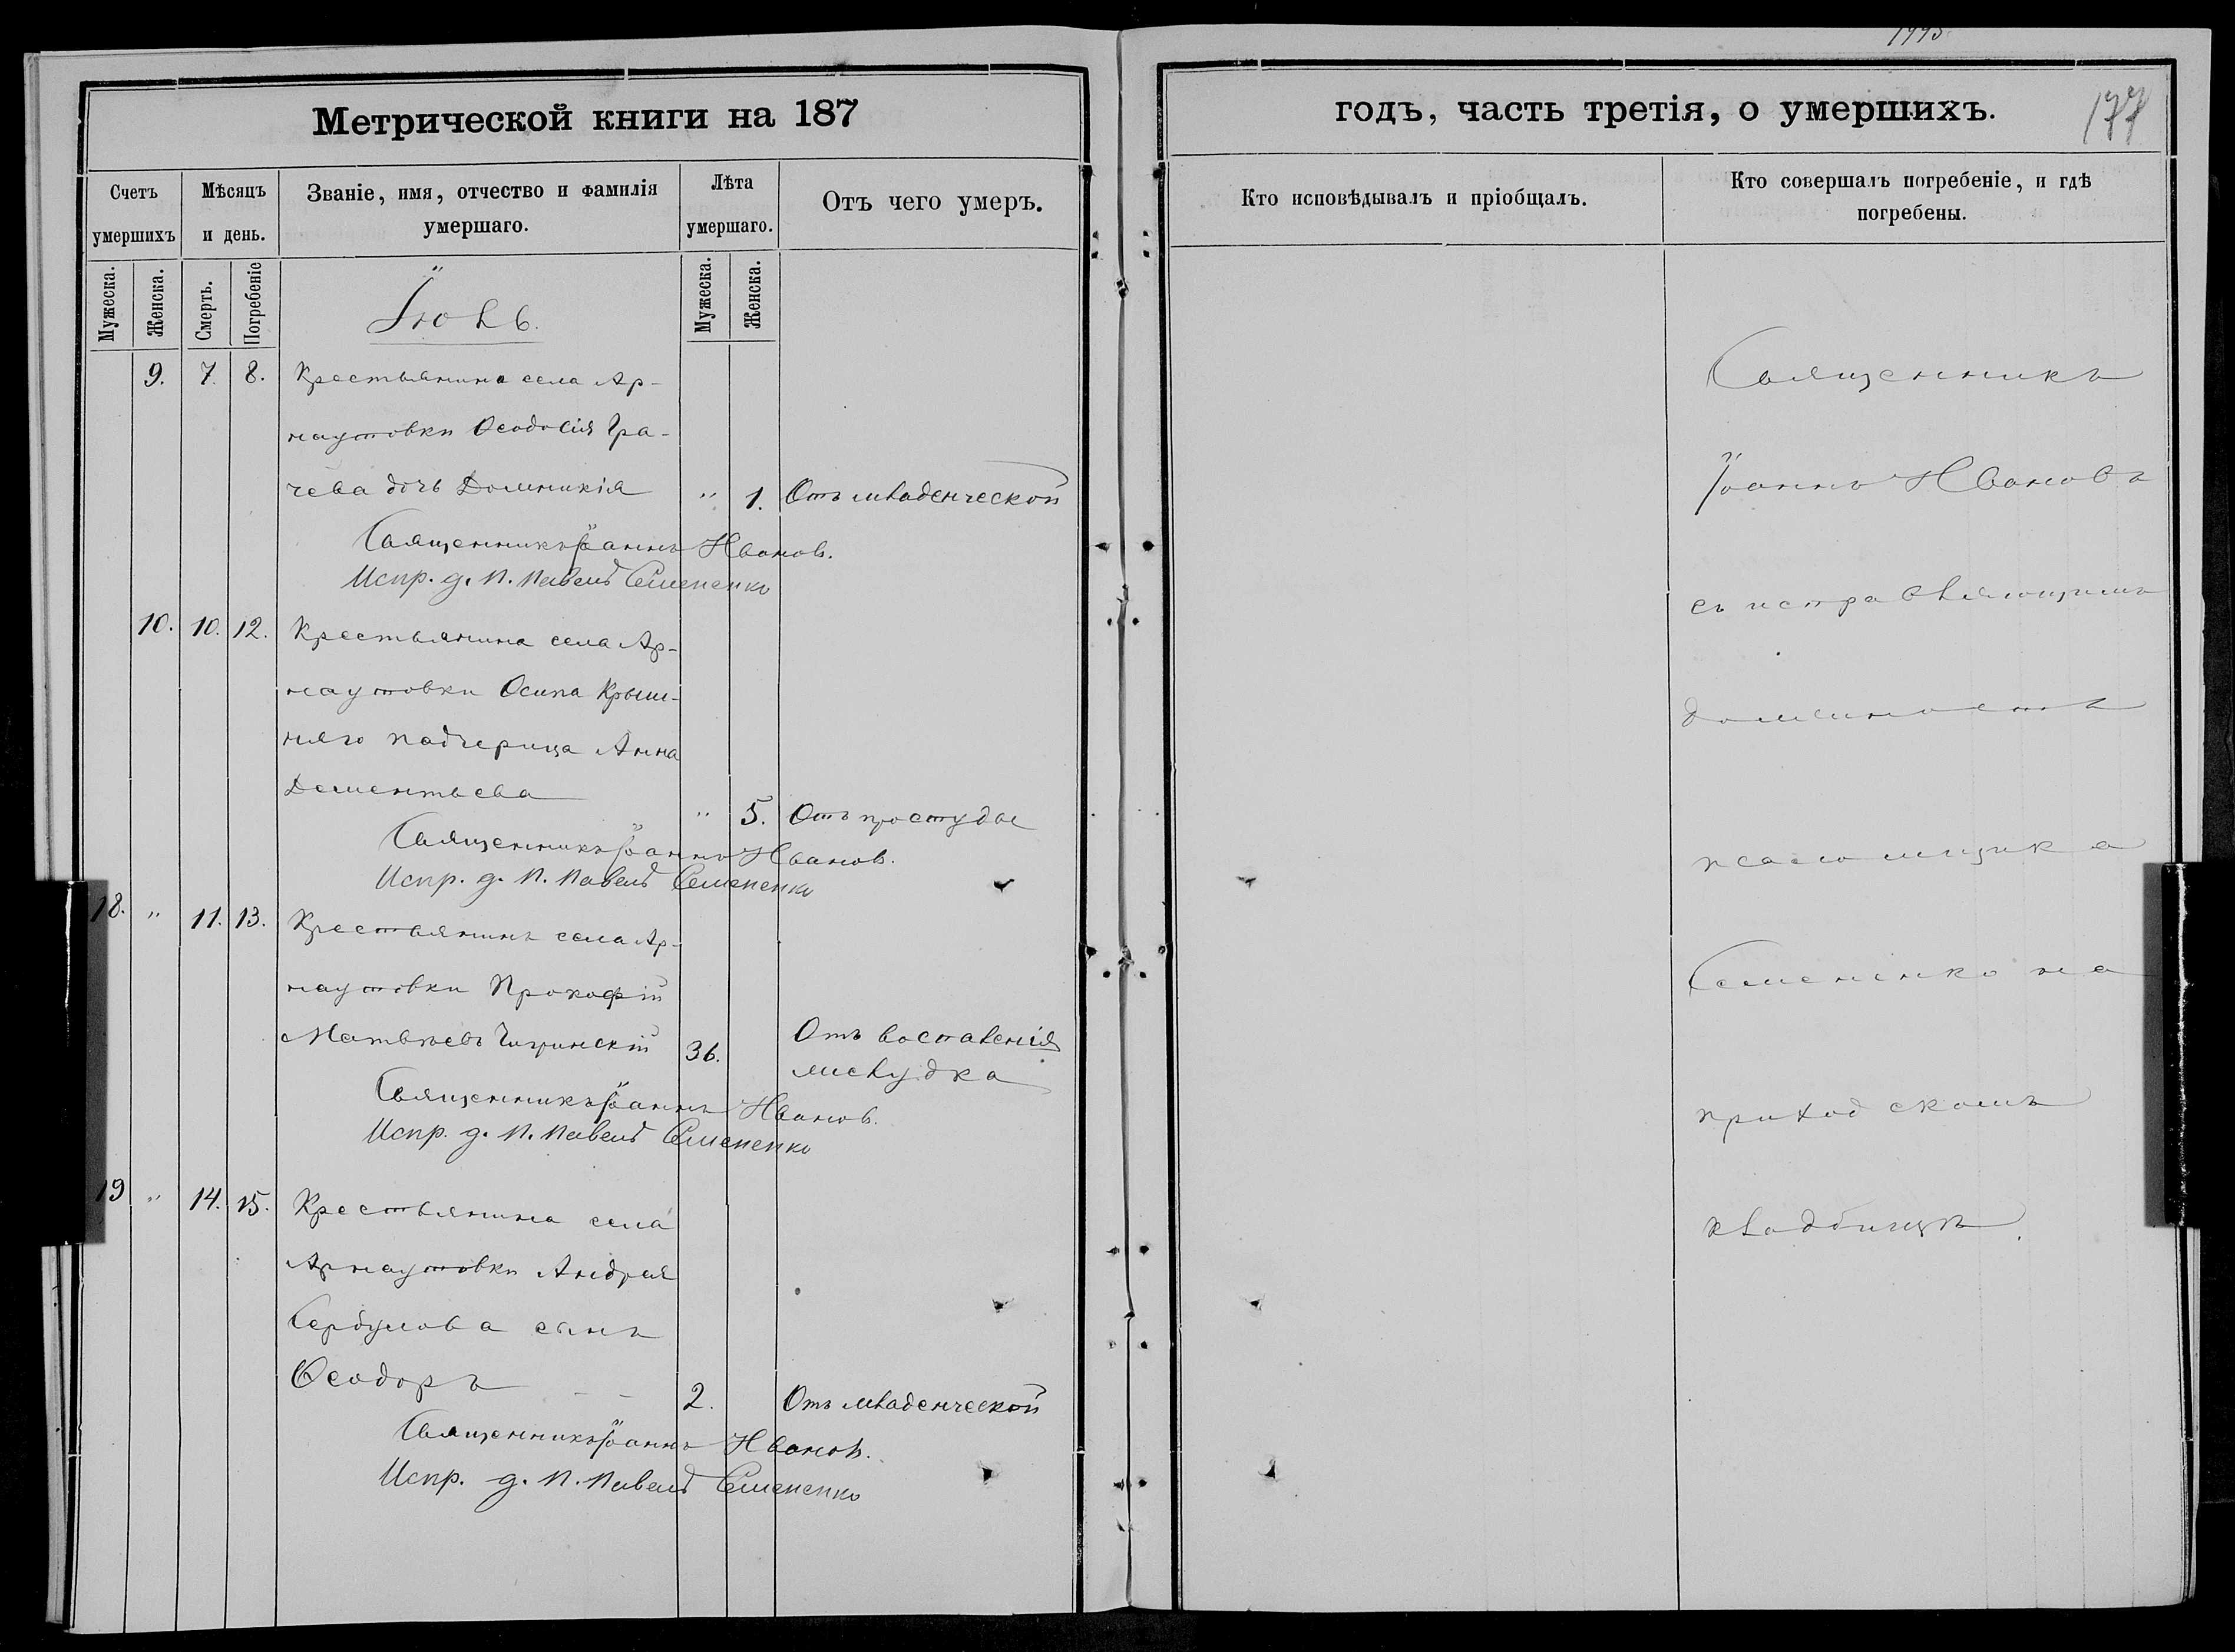 Метрической книги на 187
Счетъ умершихъ
Мѣсяцъ и день.
Званіе, имя, отчество и фамилія умершаго.
Лѣта умершаго.
Отъ чего умеръ.
Мужеска.
Женска.
Смерть.
Погребеніе
Мужеска.
Женска.
Іюль.
9. 7. 8. Крестьянина села Ар-
наутовки Ѳеодосія Гра-
чева дочь Домникія " 1. Отъ младенческой
Священникъ Іоаннъ Иванов.
Испр. д. п. Павелъ Семененко
10. 10. 12. Крестьянина села Ар-
наутовки Осипа Крыш-
няго падчерица Анна
Дементьева " 5. Отъ простуды
Священникъ Іоаннъ Иванов.
Испр. д. п. Павелъ Семененко
18. " 11. 13. Крестьянинъ села Ар-
наутовки Прокофій
Матвѣевъ Чигринскій 36. Отъ воспаленія
желудка
Священникъ Іоаннъ Иванов.
Испр. д. п. Павелъ Семененко
19 " 14. 15. Крестьянина села
Арнаутовки Андрея
Сердумова сынъ
Ѳеодоръ 2. Отъ младенческой
Священникъ Іоаннъ Иванов.
Испр. д. п. Павелъ Семененко
годъ, часть третія, о умершихъ.
177
Кто исповѣдывалъ и пріобщалъ.
Кто совершалъ погребеніе, и гдѣ
погребены.
Священникъ
Іоаннъ Ивановъ
съ исправляющимъ
должность
псаломщика
Семененко на
приходскомъ
кладбищѣ.